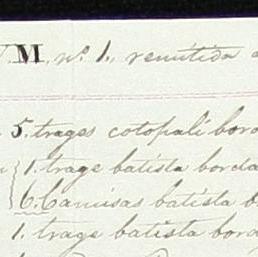 M, nº 1., remitida
5. trages cotopali bord
1. trage batista borda
6. Camisas batista b
1. trage batista bord